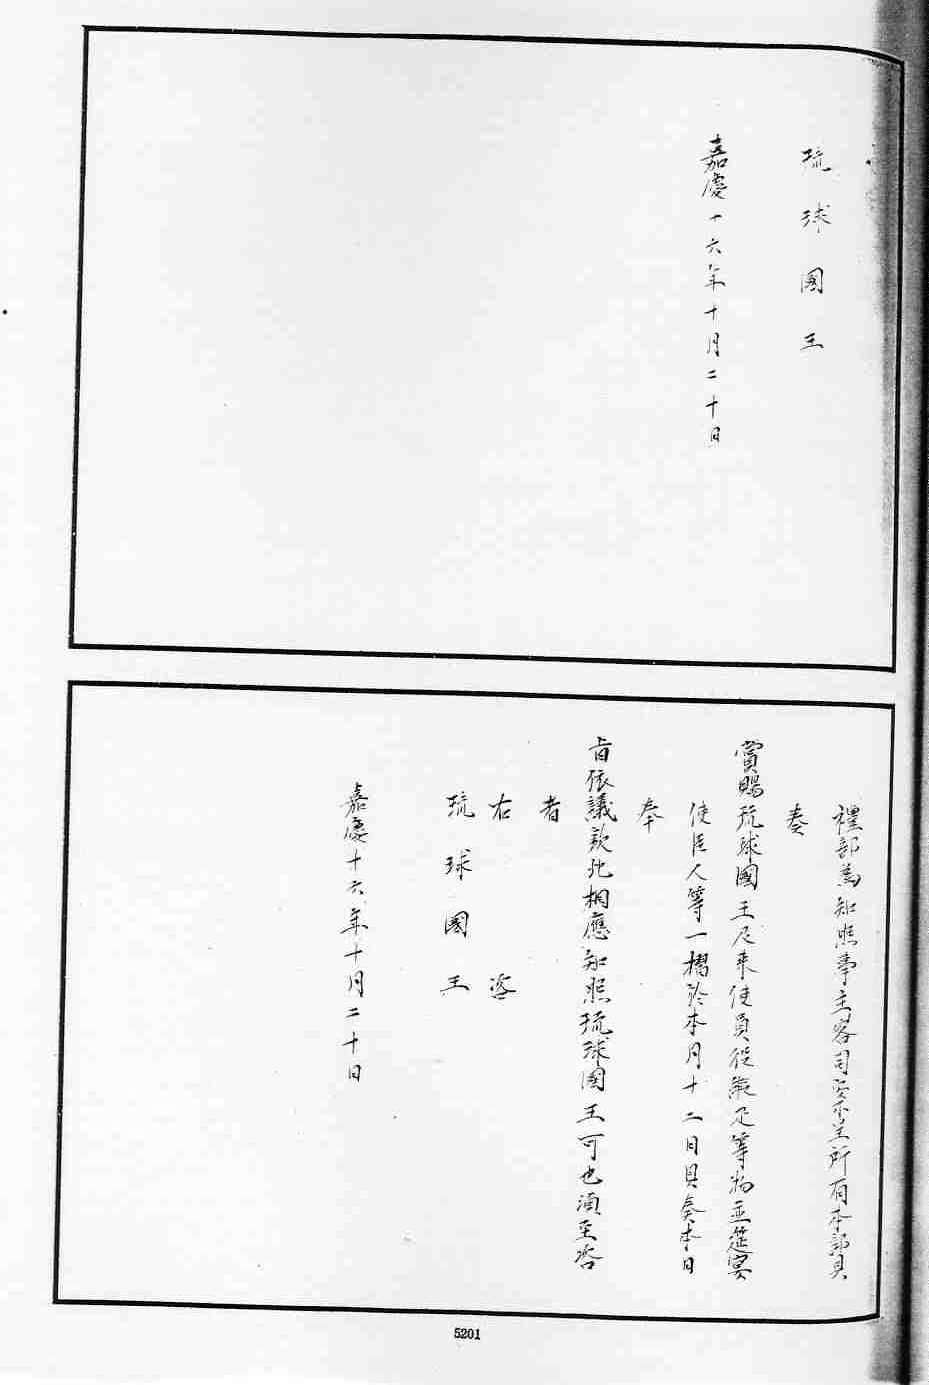 琉球國王
嘉慶十六年十月二十日
禮部爲知照事主客司案呈所有本部具
奏
賞賜琉球國王及來使員役緞疋等物並筵宴
使臣人等一摺於本月十二日具奏本日
奉
旨依議欽此相應知照琉球國王可也須至咨
者
右咨
琉球國王
嘉慶十六年十月二十日
5201